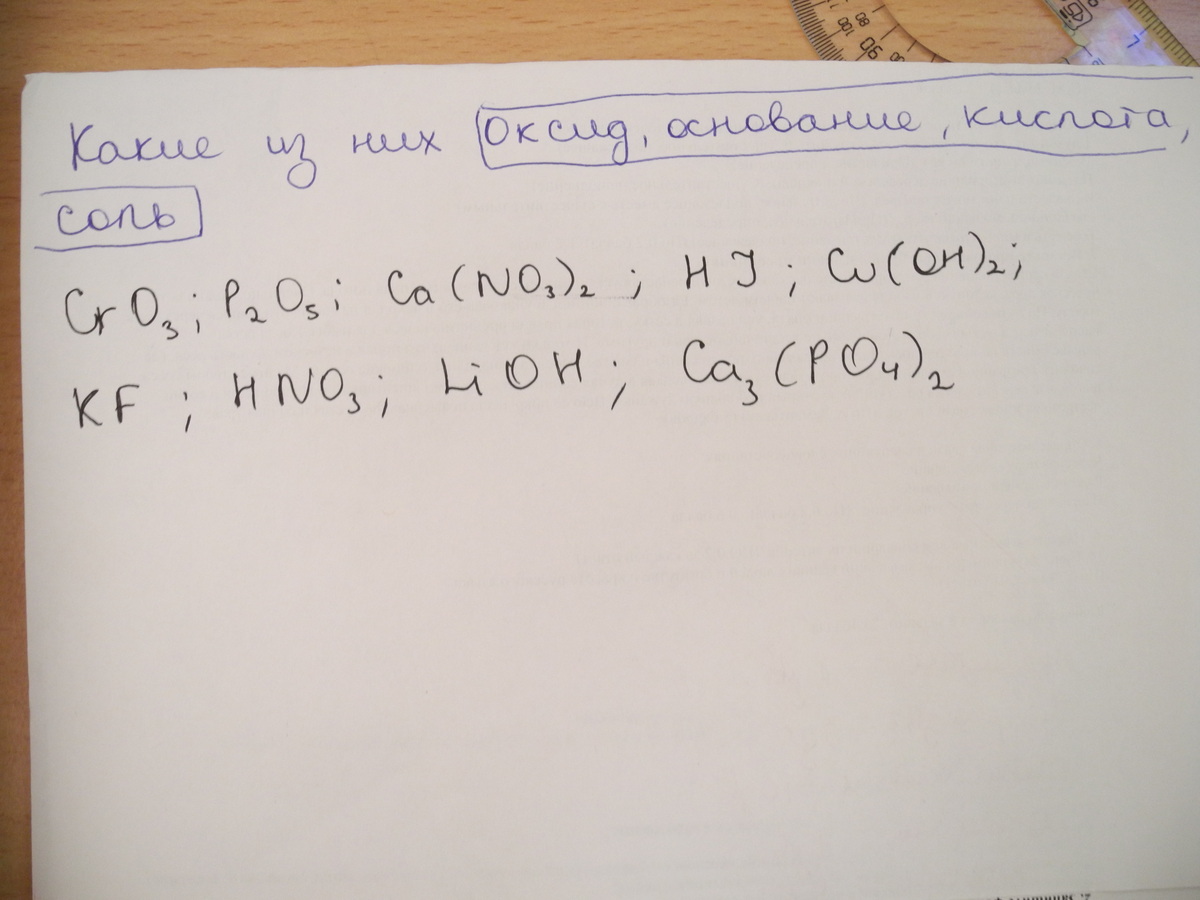 Какие из них оксид, основание, кислота,
соль
CrO₃; P₂O₅; Ca(NO₃)₂; HJ; Cu(OH)₂;
KF; HNO₃; LiOH; Ca₃(PO₄)₂